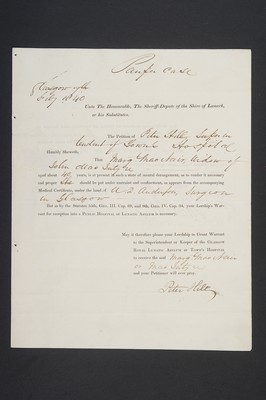 Pauper Case
Glasgow 19th
Feby 1840
Unto The Honourable, The Sheriff-Depute of the Shire of Lanark,
or his Substitutes.
The Petition of Peter Hill, Superin
tendent of Town's Hospital
Humbly Sheweth,
That Mary MacBain, Widow of
John
aged about 40 years, is at present in such a state of mental derangement, as to render it necessary
and proper She should be put under restraint and confinement, as appears from the accompanying
Medical Certificate, under the hand of A. D. Anderson Surgeon
in Glasgow
But as by the Statutes 55th, Geo. III. Cap. 69, and 9th, Geo. IV. Cap. 34, your Lordship's Warrant
for reception into a Public Hospital or Lunatic Asylum is necessary.
May it therefore please your Lordship to Grant Warrant
to the Superintendent or Keeper of the Glasgow
Royal Lunatic Asylum or Town's Hospital
to receive the said Mary MacBain
or
and your Petitioner will ever pray.
Peter Hill